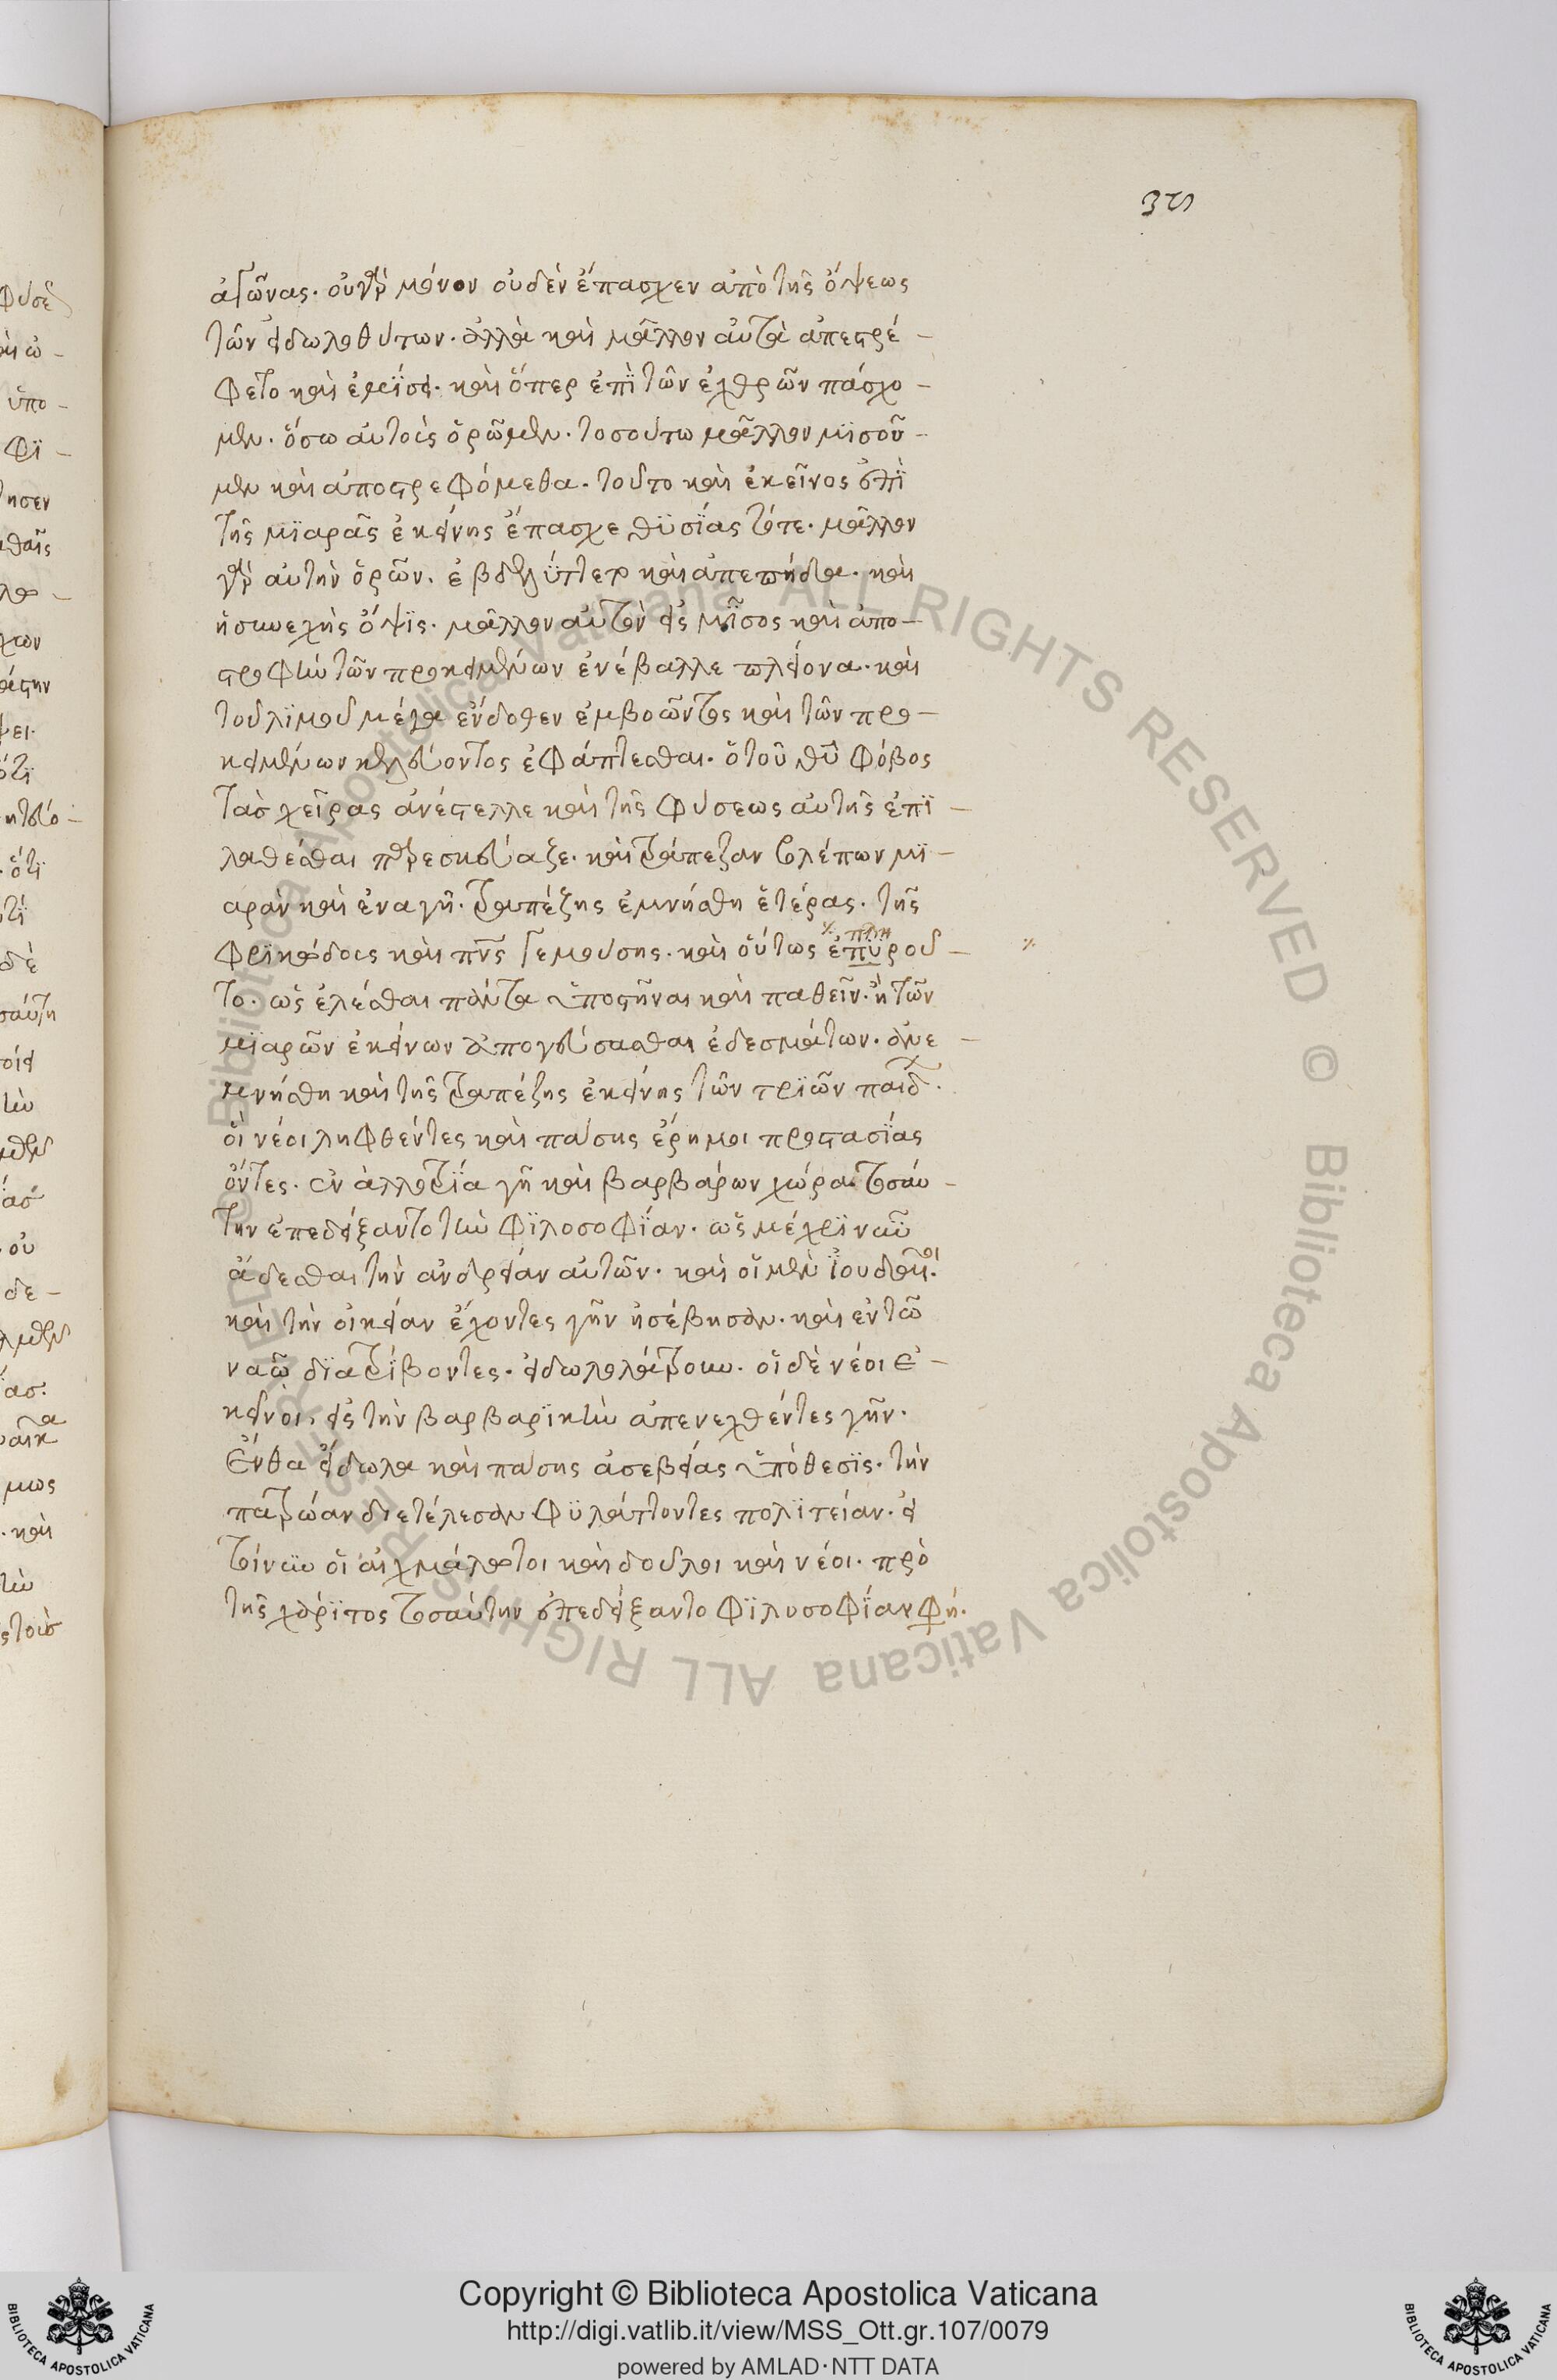 375
ἀγῶνας. οὐ γὰρ μόνον οὐδὲν ἔπασχεν ἀπὸ τῆς ὄψεως
τῶν εἰδωλοθύτων. ἀλλὰ καὶ μᾶλλον αὐτὰ ἀπεστρέ-
φετο καὶ ἐμίσει. καὶ ὅπερ ἐπὶ τῶν ἐχθρῶν πάσχο-
μεν. ὅσω αὐτοὺς ὁρῶμεν. τοσούτω μᾶλλον μισοῦ-
μεν καὶ ἀποστρεφόμεθα. τοῦτο καὶ ἐκεῖνος ἐπὶ
τῆς μιαρᾶς ἐκείνης ἔπασχε θυσίας τότε. μᾶλλον
γὰρ αὐτὴν ὁρῶν. ἐβδελύττετο καὶ ἀπεπήδα. καὶ
ἡ συνεχὴς ὄψις. μᾶλλον αὐτὸν εἰς μῖσος καὶ ἀπο-
στροφὴν τῶν προκειμένων ἐνέβαλλε πλείονα. καὶ
τοῦ λιμοῦ μέγα ἔνδοθεν ἐμβοῶντος καὶ τῶν προ-
κειμένων κελεύοντος ἐφάπτεσθαι. ὁ τοῦ θυ φόβος
τὰς χεῖρας ἀνέστελλε καὶ τῆς φύσεως αὐτῆς ἐπι-
λαθέσθαι παρεσκεύαζε. καὶ τράπεζαν βλέπων μι-
αρὰν καὶ ἐναγῆ. τραπέζης ἐμνήσθη ἑτέρας. τῆς
φρικώδους καὶ πνς γεμούσης. καὶ οὕτως ἐπυροῦ-
το. ὡς ἑλέσθαι πάντα ὑποστῆναι καὶ παθεῖν. ἢ τῶν
μιαρῶν ἐκείνων ἀπογεύσασθαι ἐδεσμάτων. ἀνε-
μνήσθη καὶ τῆς τραπέζης ἐκείνης τῶν τριῶν παίδ.
οἳ νέοι ληφθέντες καὶ πάσης ἔρημοι προστασίας
ὄντες. ἐν ἀλλοτρία γῆ καὶ βαρβάρων χώρα. τοσαύ-
την ἐπεδείξαντο τὴν φιλοσοφίαν. ὡς μέχρι νῦν
ἄδεσθαι τὴν ἀνδρείαν αὐτῶν. καὶ οἱ μὲν ἰουδαῖοι.
καὶ τὴν οἰκείαν ἔχοντες γῆν ἠσέβησαν. καὶ ἐν τῶ
ναῶ διατρίβοντες. εἰδωλολάτρουν. οἱ δὲ νέοι ἐ-
κεῖνοι, εἰς τὴν βαρβαρικὴν ἀπενεχθέντες γῆν.
ἔνθα εἴδωλα καὶ πάσης ἀσεβείας ὑπόθεσις. τὴν
πατρώαν διετέλεσαν φυλάττοντες πολιτείαν. εἰ
τοίνυν οἱ αἰχμάλωτοι καὶ δοῦλοι καὶ νέοι. πρὸ
τῆς χάριτος τοσαύτην ἐπεδείξαντο φιλοσοφίαν φή.
Copyright © Biblioteca Apostolica Vaticana
http://digi.vatlib.it/view/MSS_Ott.gr.107/0079
powered by AMLAD·NTT DATA